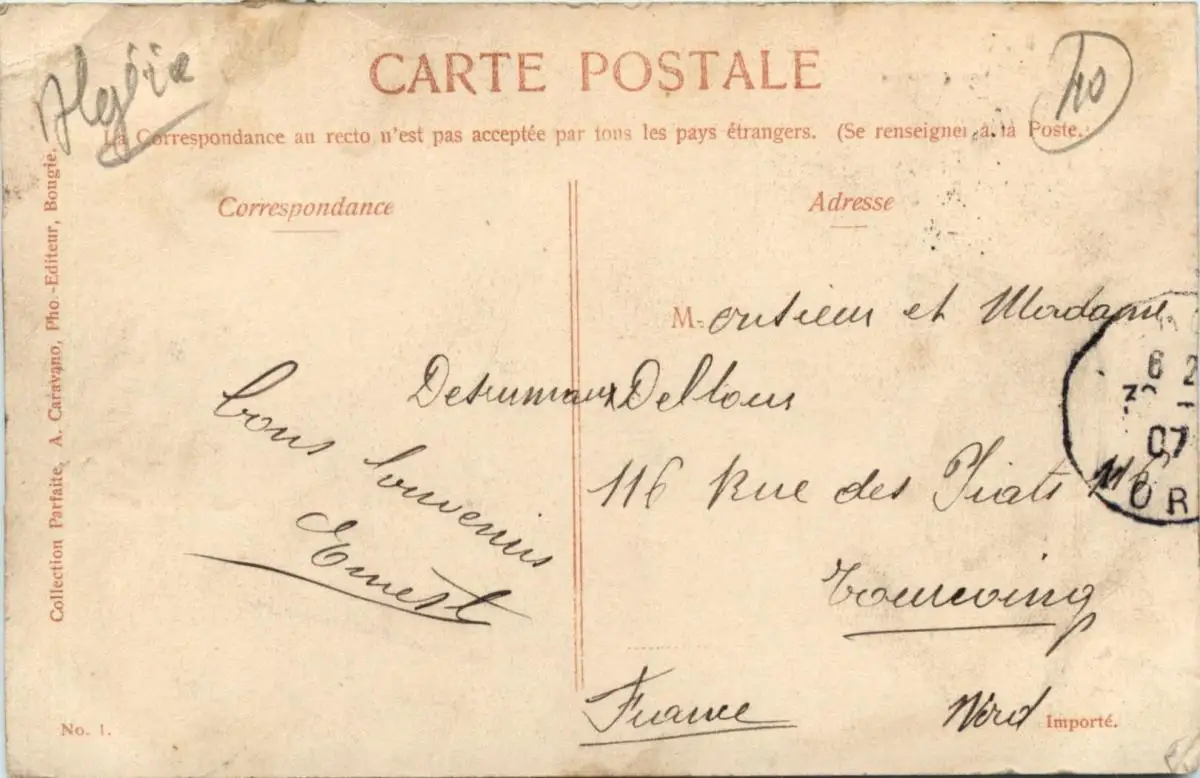 Algérie
40
CARTE POSTALE
La Correspondance au recto n'est pas acceptée par tous les pays étrangers. (Se renseigner à la Poste.)
Collection Parfaite, A. Caravano, Pho.-Editeur, Bougie.
Correspondance
Adresse
Monsieur et Madame
Desrumaux Deltour
116 Rue des Piats 116
Tourcoing
France
Nord
bons souvenirs
Ernest
6 2
07
OR
No. 1.
Importé.